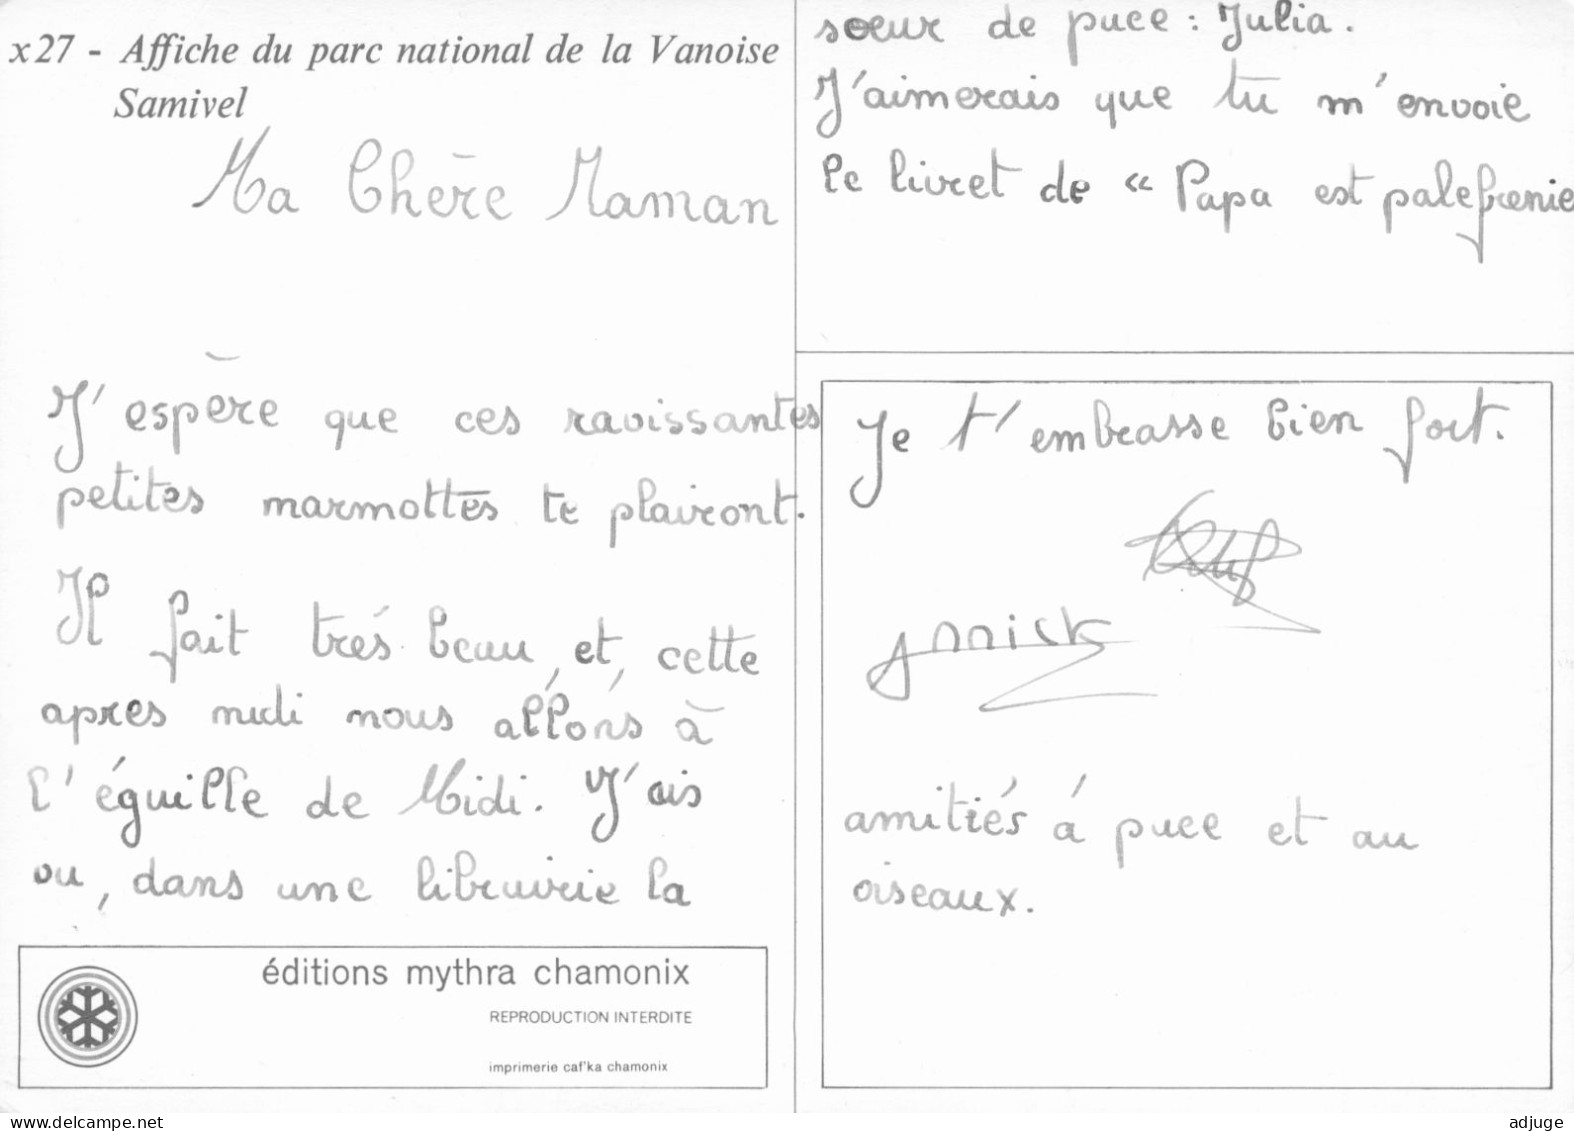 x27 - Affiche du parc national de la Vanoise
Samivel
Ma Chère Maman
J'espère que ces ravissantes
petites marmottes te plairont.
Il fait trés beau, et, cette
apres midi nous allons à
l'éguille de Midi. J'ais
vu, dans une librairie la
soeur de puce : Julia.
J'aimerais que tu m'envoie
le livret de « Papa est palefrenie
Je t'embrasse bien fort.
annick
amitiés á puce et au
oiseaux.
éditions mythra chamonix
REPRODUCTION INTERDITE
imprimerie caf'ka chamonix
adjuge